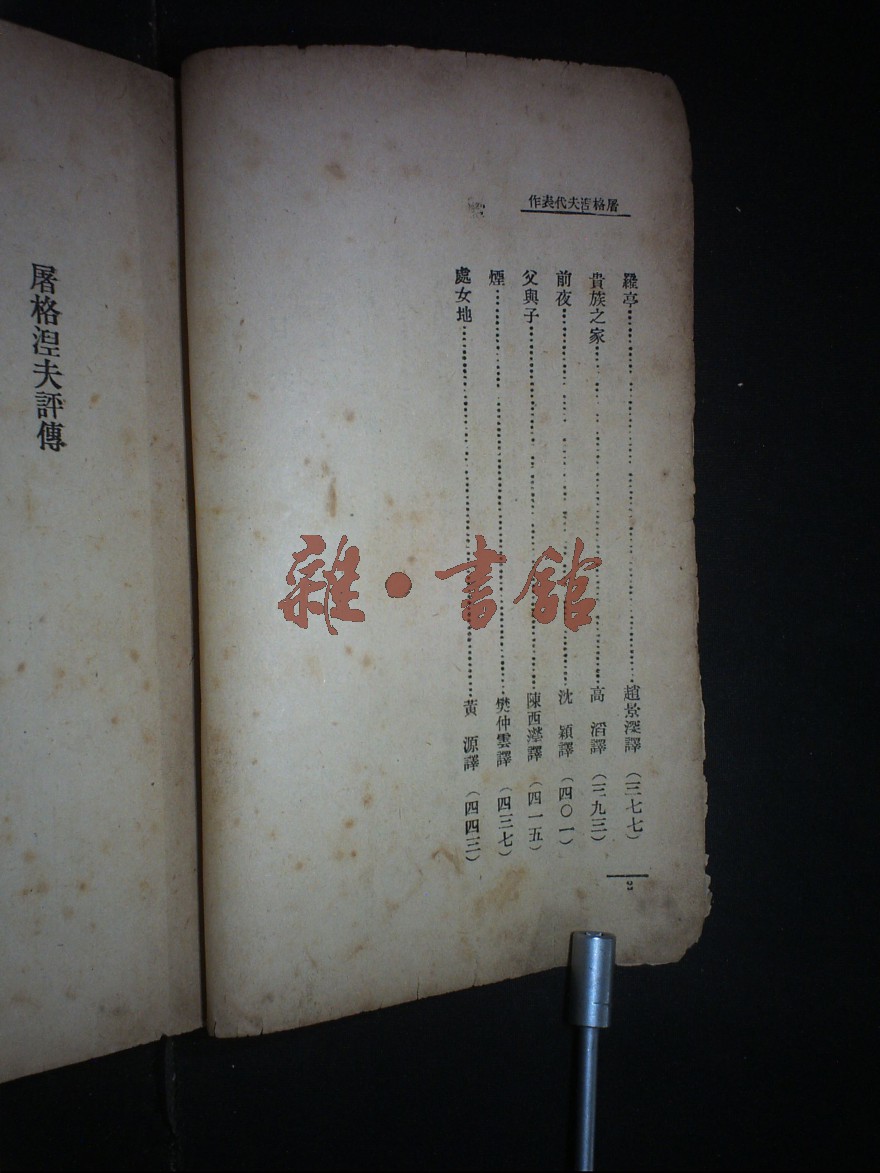 屠格涅夫代表作
羅亭 趙景深譯（三七七）
貴族之家 高滔譯（三九三）
前夜 沈穎譯（四〇一）
父與子 陳西瀅譯（四一五）
煙 樊仲雲譯（四三七）
處女地 黃源譯（四四三）
2
屠格涅夫評傳
雜·書館